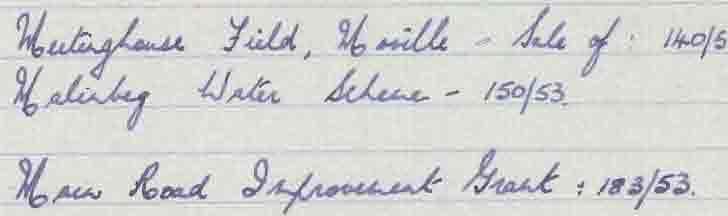 Meetinghouse Field, Moville - Sale of : 140/5
Malinbeg Water Scheme - 150/53.
Main Road Improvement Grant : 183/53.